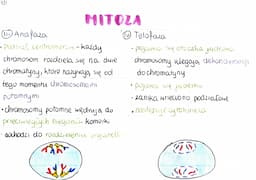 MITOZA
Anafaza
• podział centromerów - każdy
chromosom rozdziela się na dwie
chromatydy, które nazywają się od
tego momentu chromosomami
potomnymi
• chromosomy potomne wędrują do
przeciwległych biegunów komórki
• dochodzi do rozdzielenia organelli
Telofaza
• pojawia się otoczka jądrowa
chromosomy ulegają dekondensacji
do chromatyny
• pojawia się jąderko
• zanika wrzeciono podziałowe
• następuje cytokineza